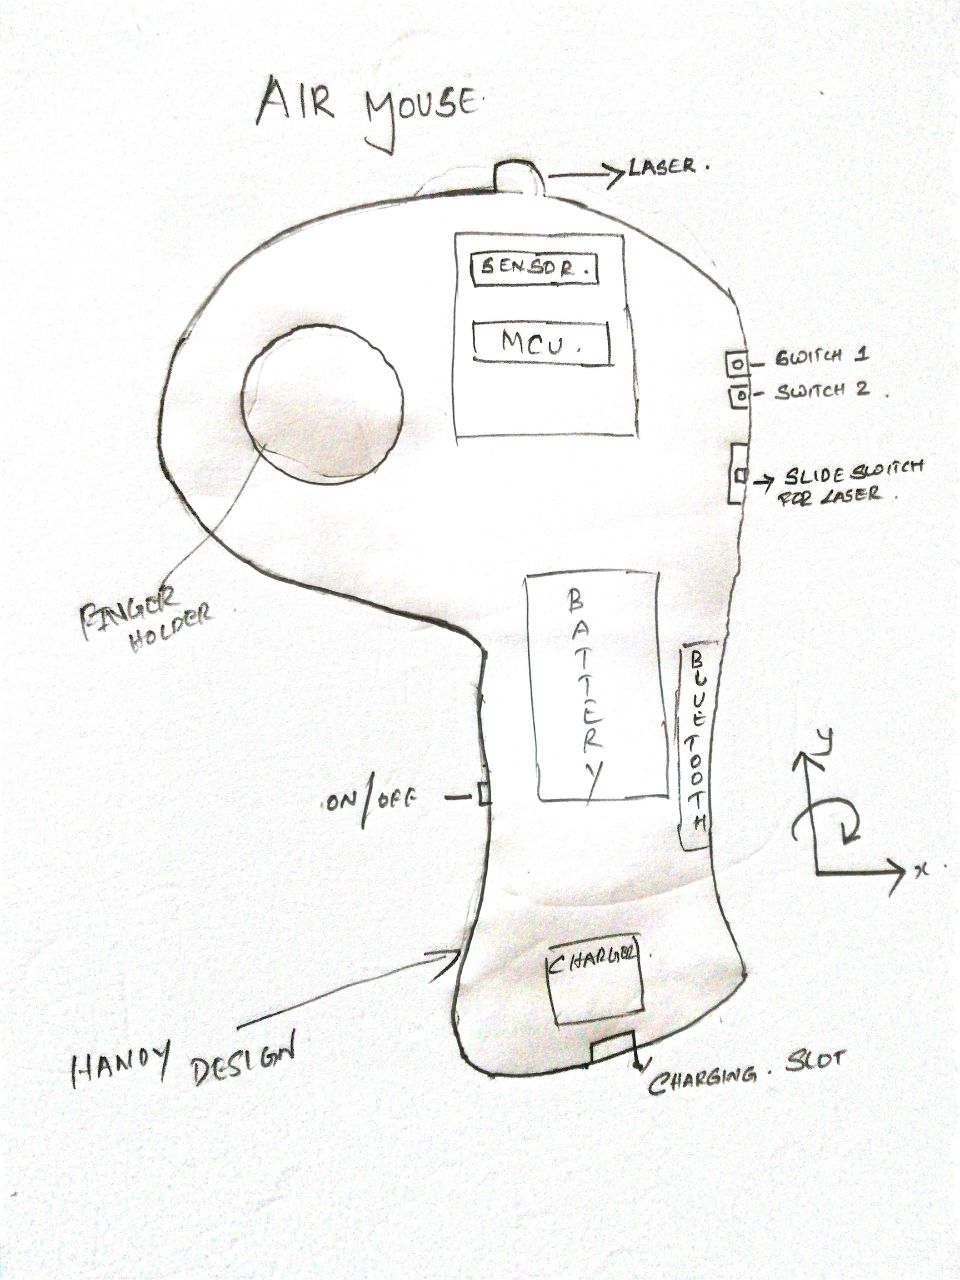 AIR MOUSE.
LASER.
SENSOR.
MCU.
SWITCH 1
SWITCH 2.
SLIDE SWITCH
FOR LASER.
FINGER
HOLDER
BATTERY
BLUETOOTH
ON/OFF
y
x.
CHARGER.
HANDY DESIGN
CHARGING. SLOT